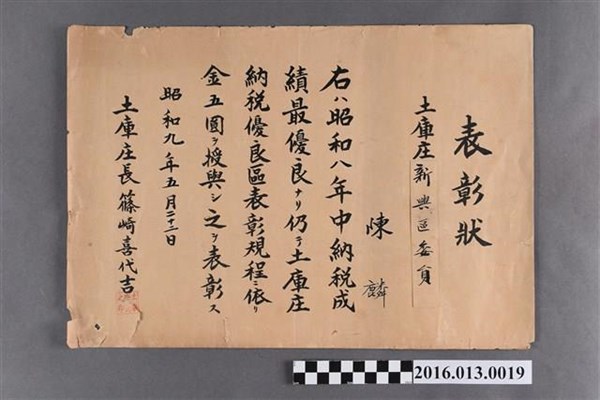 表彰狀
土庫庄新興區委員
陳麟
右ハ昭和八年中納稅成
績最優良ナリ仍テ土庫庄
納稅優良區表彰規程ニ依リ
金五圓ヲ授與シ之ヲ表彰ス
昭和九年五月二十三日
土庫庄長篠崎喜代吉
2016.013.0019